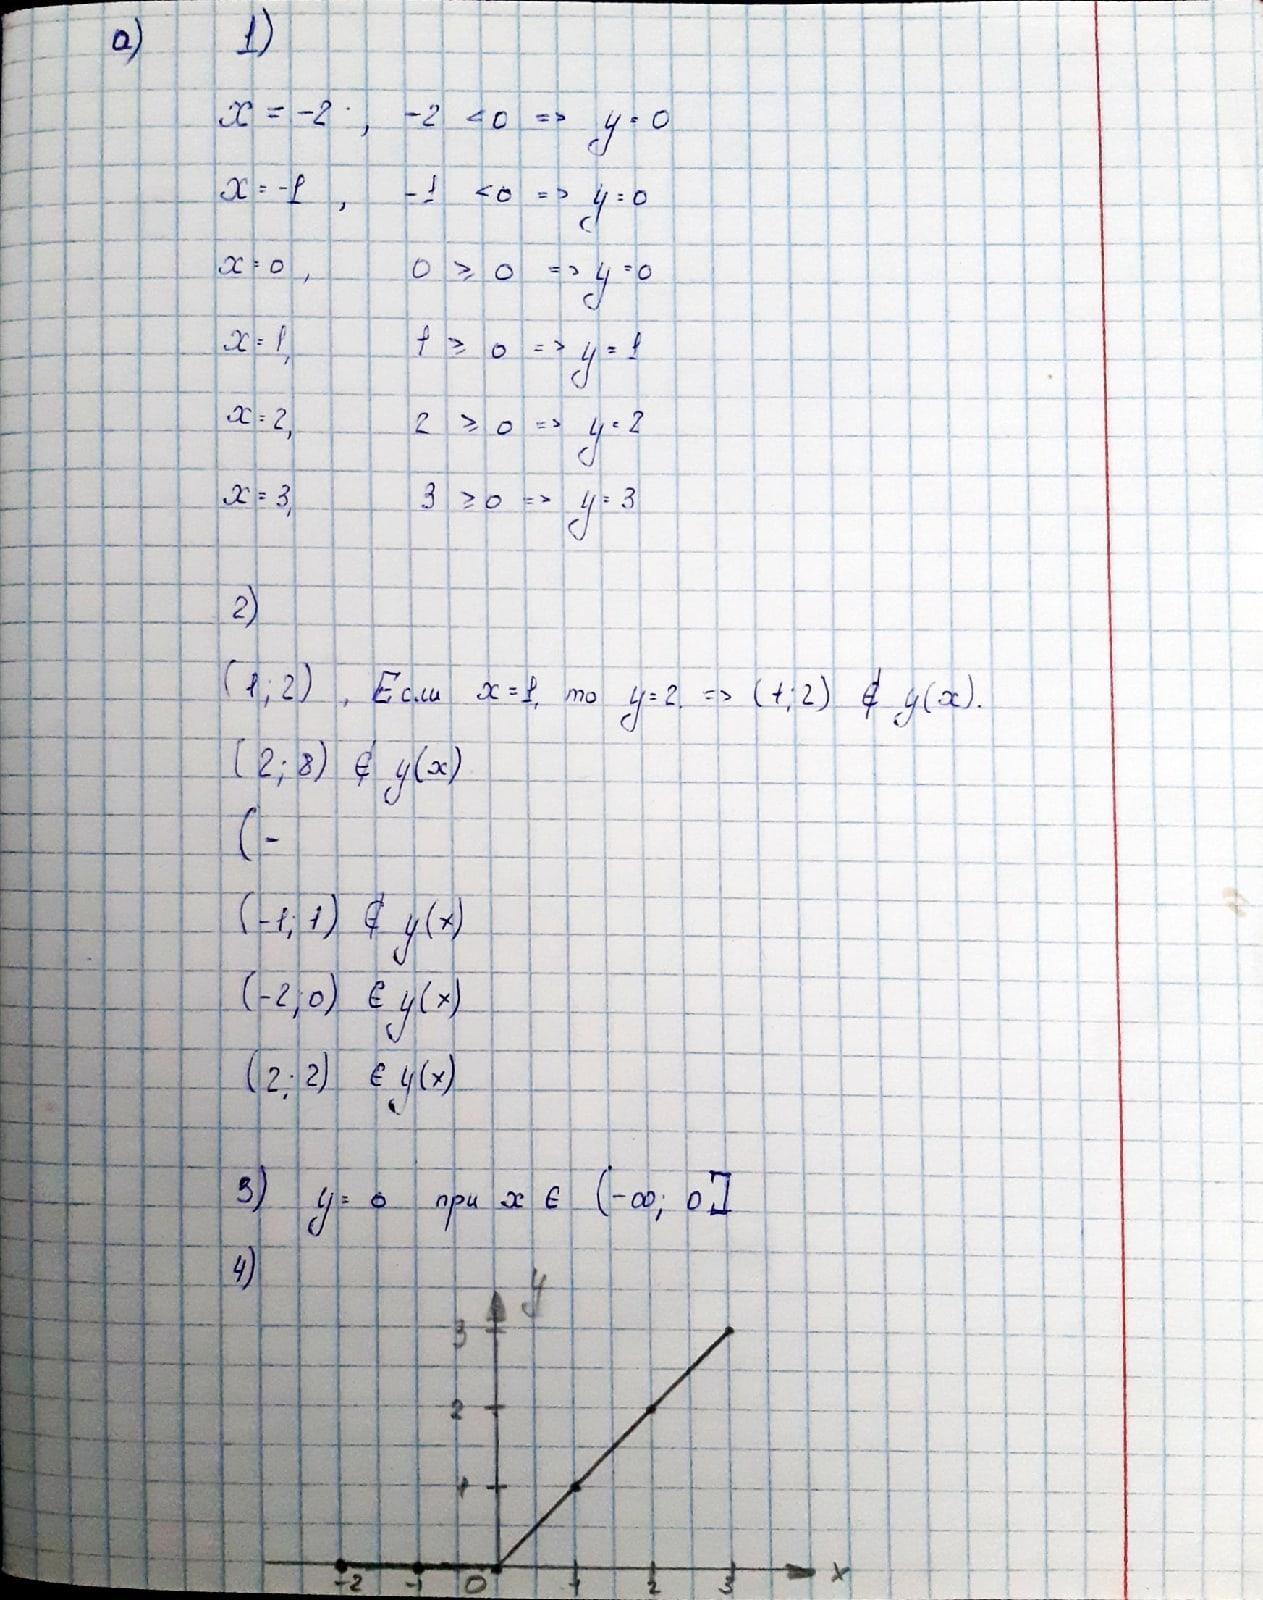 а) 1)
x = -2, -2 < 0 => y = 0
x = -1, -1 < 0 => y = 0
x = 0, 0 ≥ 0 => y = 0
x = 1, 1 ≥ 0 => y = 1
x = 2, 2 ≥ 0 => y = 2
x = 3, 3 ≥ 0 => y = 3
2)
(1; 2), Если x = 1, то y = 2 => (1; 2) ∉ y(x).
(2; 8) ∉ y(x)
(-
(-1; 1) ∉ y(x)
(-2; 0) ∈ y(x)
(2; 2) ∈ y(x)
3) y = 0 при x ∈ (-∞; 0]
4)
y
3
2
1
-2 -1 0 1 2 3 x